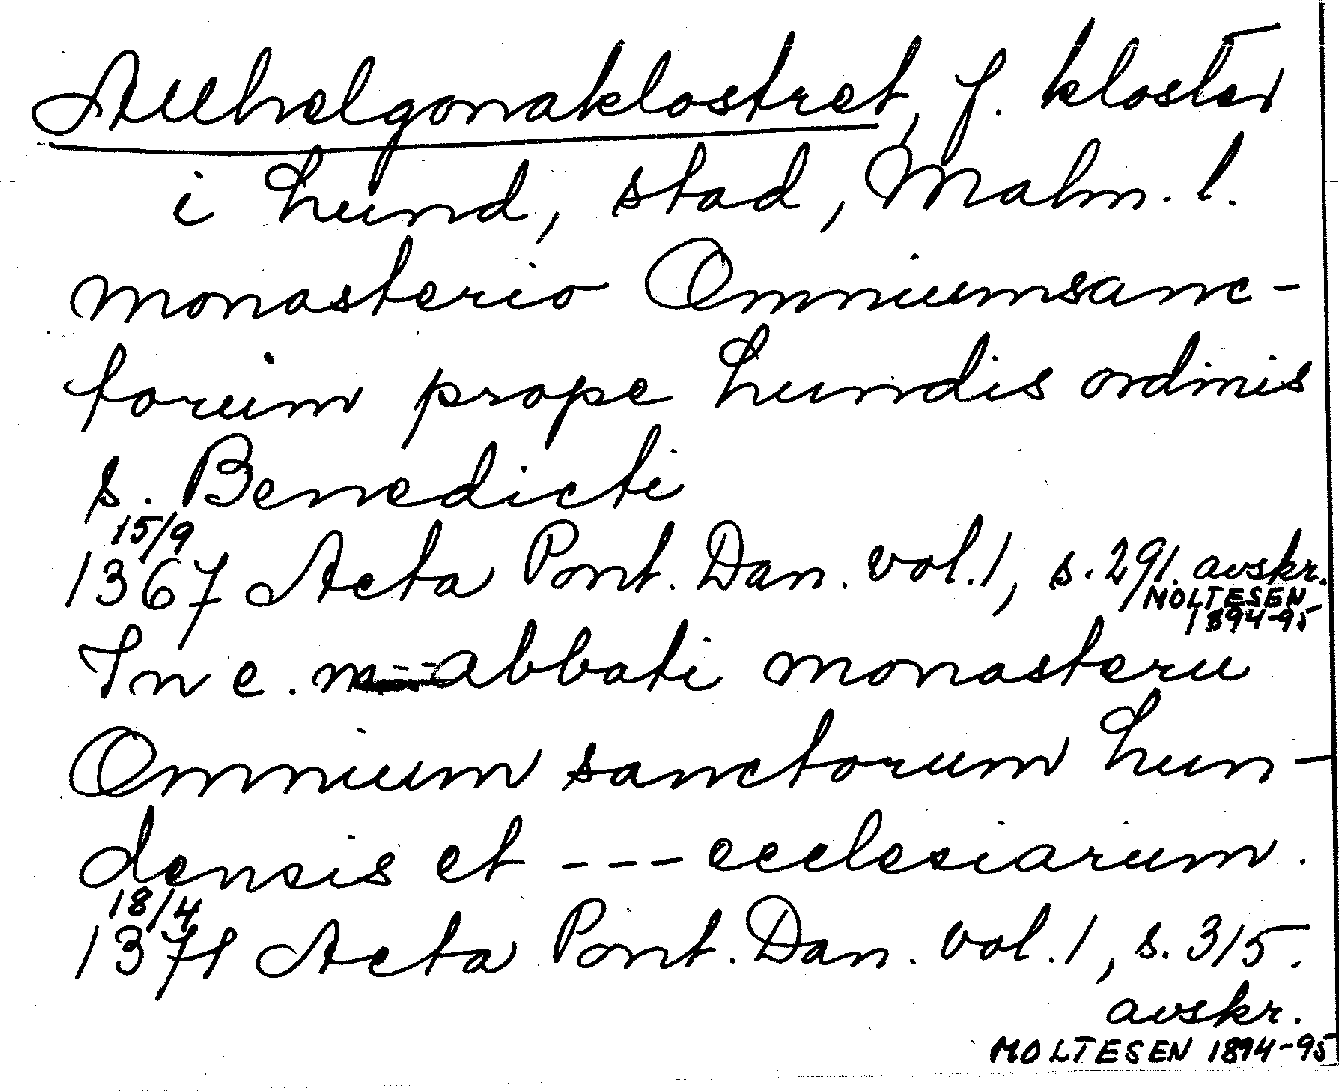 Allhelgonaklostret, f. kloster
i Lund, stad, Malm. l.
monasterio Omniumsanc-
torum prope Lundis ordinis
s. Benedicti
15/9
1367 Acta Pont. Dan. vol. 1, s. 291. avskr.
MOLTESEN
1894-95
In e. m -- abbati monasterii
Omnium sanctorum Lun-
densis et --- ecclesiarum.
18/4
1371 Acta Pont. Dan. vol. 1, s. 315.
avskr.
MOLTESEN 1894-95